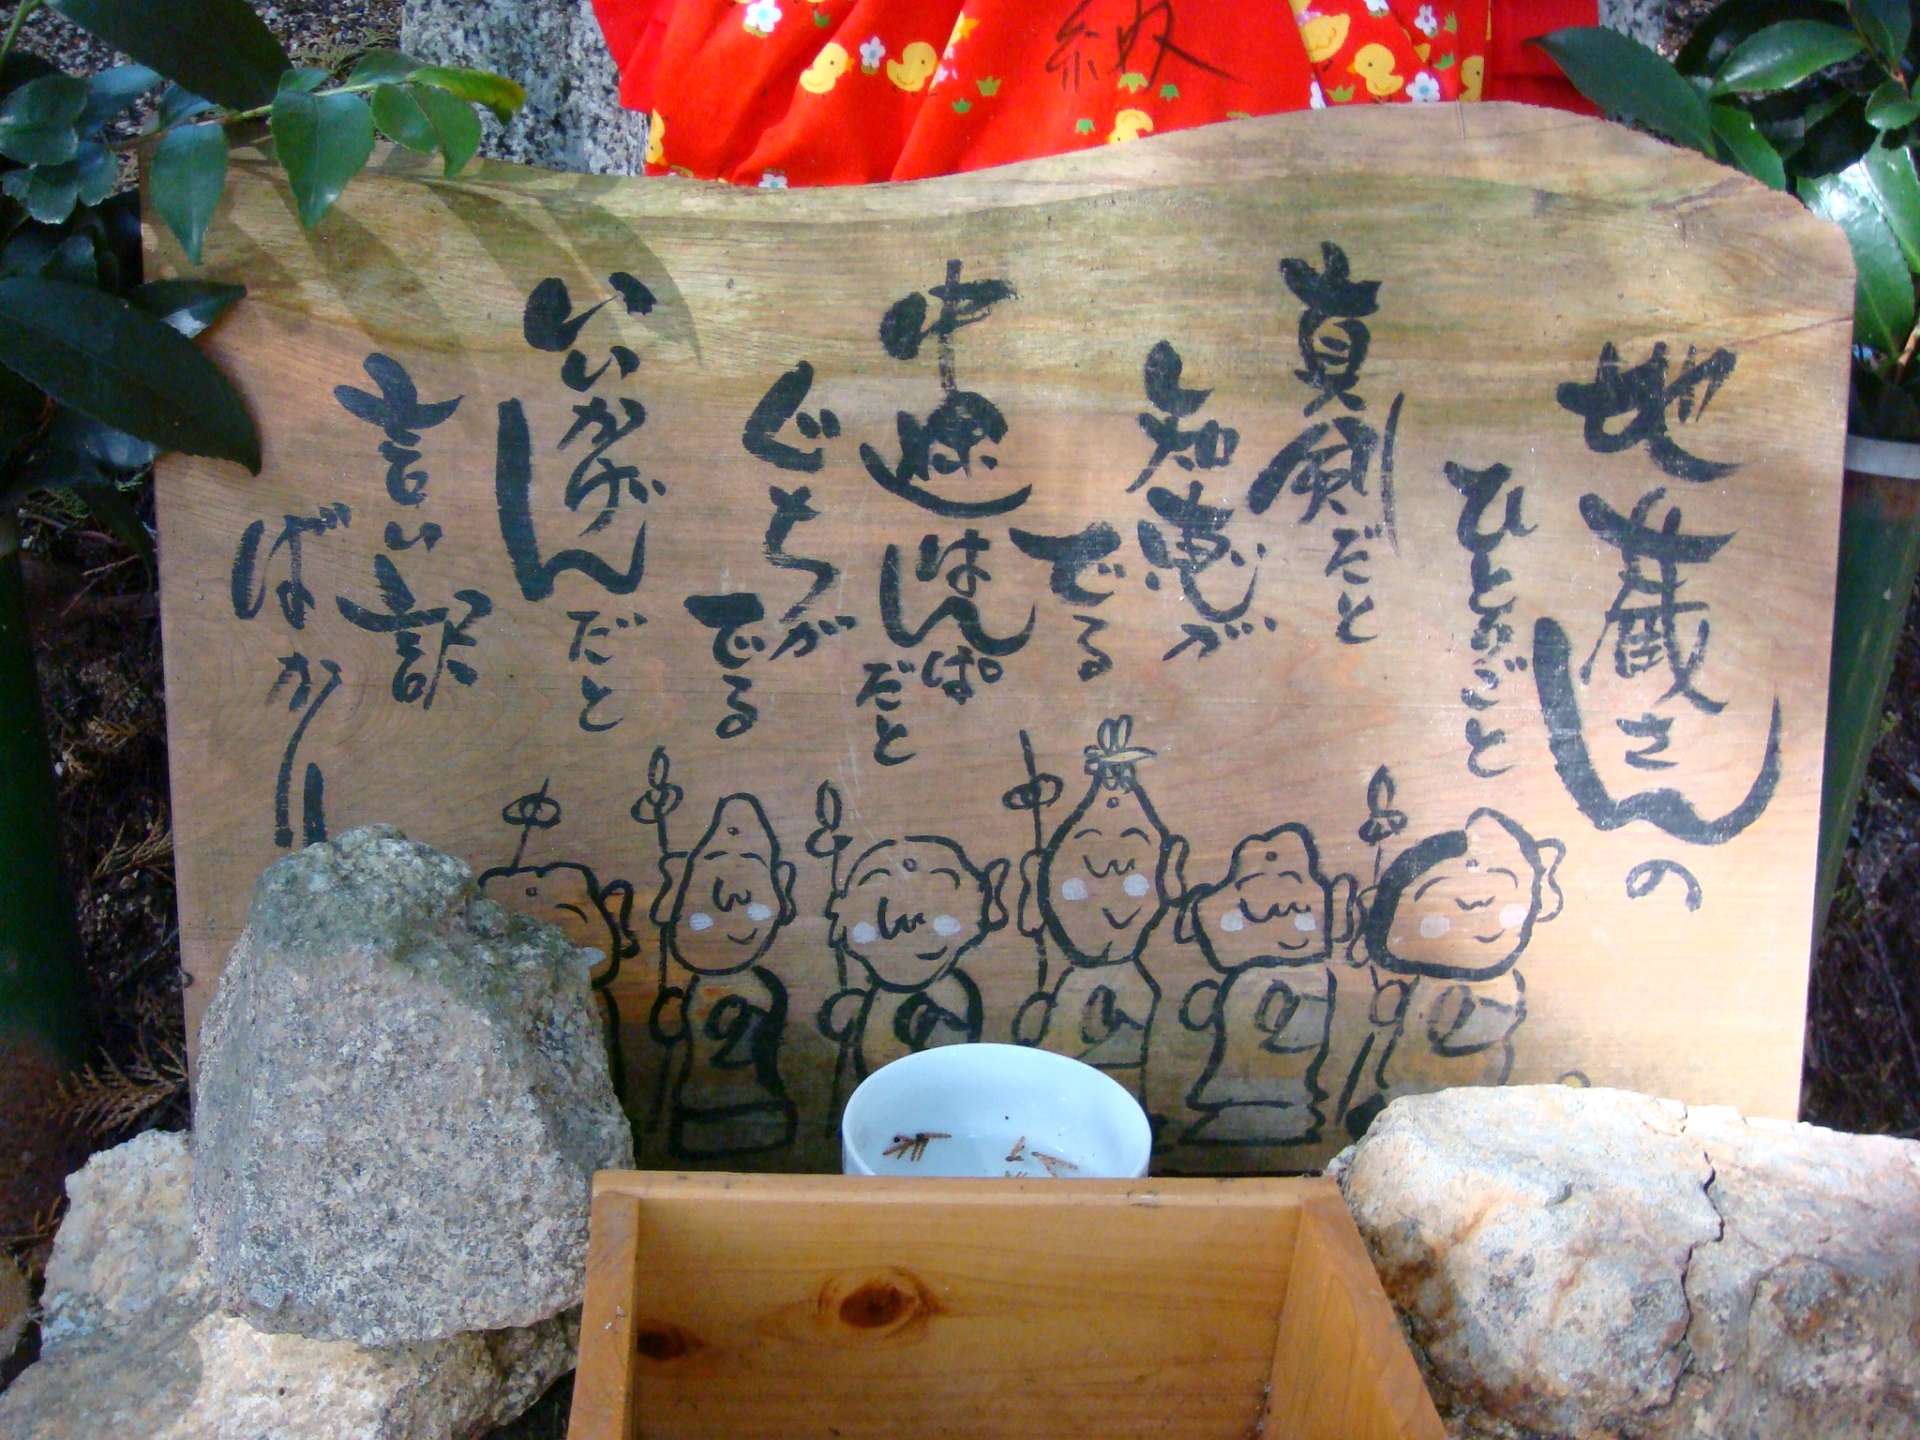 納
地蔵さんの
ひとりごと
真剣だと
知恵が
でる
中途はんぱだと
ぐちが
でる
いいかげんだと
言い訳
ばかり